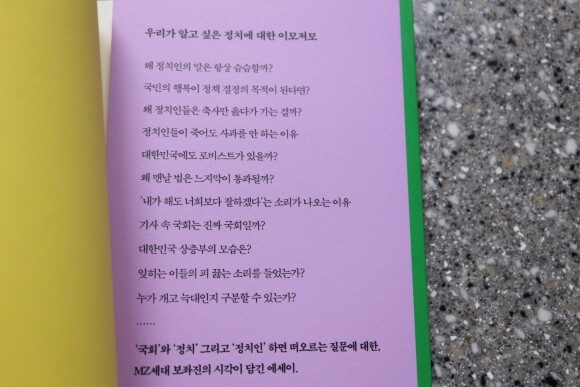 우리가 알고 싶은 정치에 대한 이모저모
왜 정치인의 말은 항상 슴슴할까?
국민의 행복이 정책 결정의 목적이 된다면?
왜 정치인들은 축사만 읊다가 가는 걸까?
정치인들이 죽어도 사과를 안 하는 이유
대한민국에도 로비스트가 있을까?
왜 맨날 법은 느지막이 통과될까?
‘내가 해도 너희보다 잘하겠다’는 소리가 나오는 이유
기사 속 국회는 진짜 국회일까?
대한민국 상층부의 모습은?
잊히는 이들의 피 끓는 소리를 들었는가?
누가 개고 늑대인지 구분할 수 있는가?
……
‘국회’와 ‘정치’ 그리고 ‘정치인’ 하면 떠오르는 질문에 대한,
MZ세대 보좌진의 시각이 담긴 에세이.